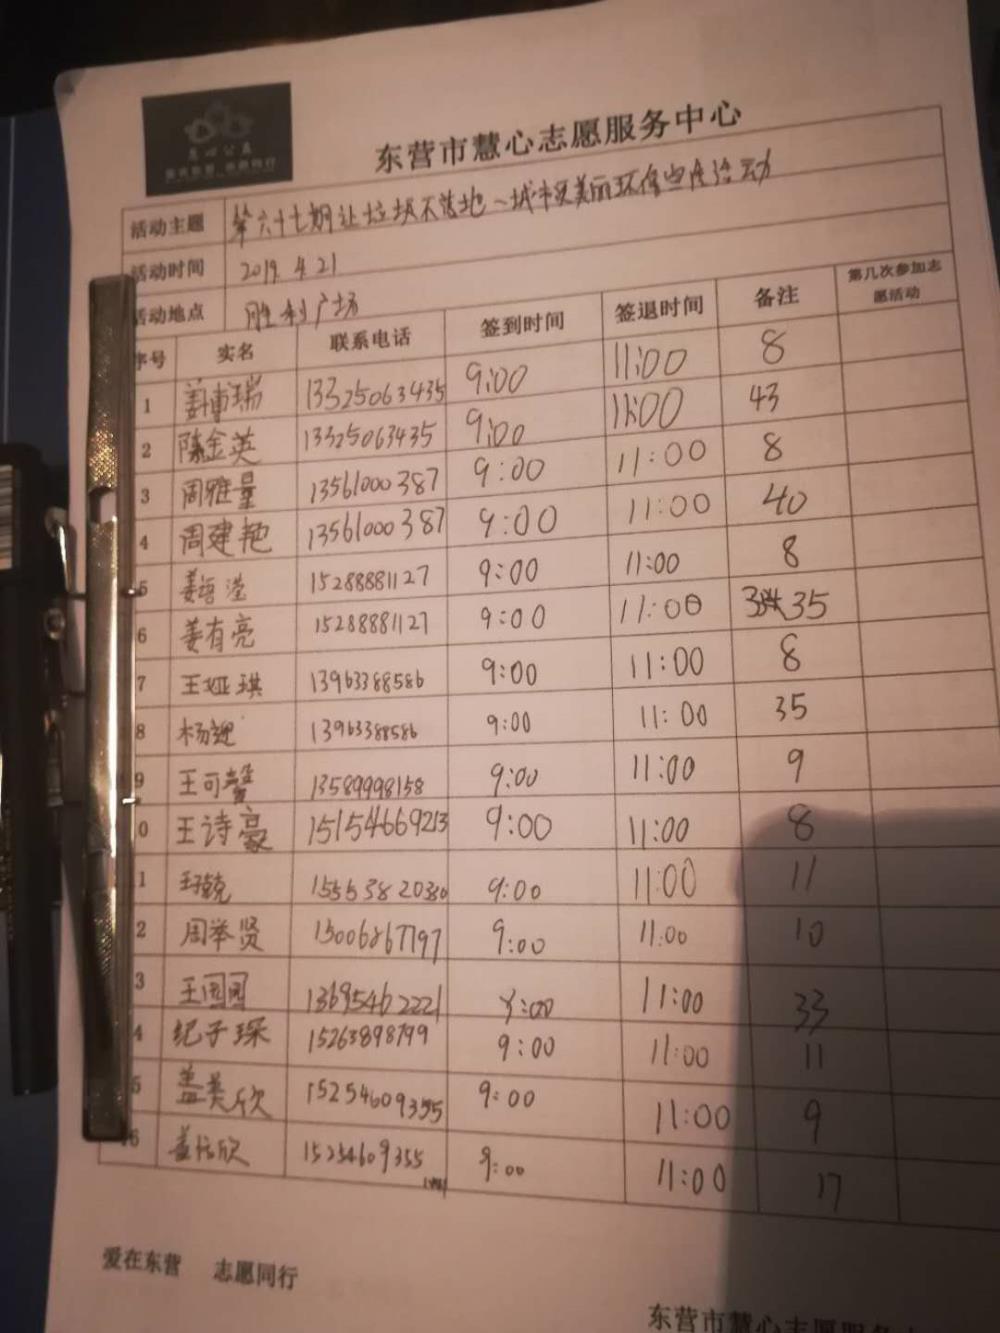 东营市慧心志愿服务中心
活动主题 第六十七期让垃圾不落地~城市更美丽环保宣传活动
活动时间 2019.4.21
活动地点 胜利广场
序号 实名 联系电话 签到时间 签退时间 备注 第几次参加志愿活动
1 13325063435 9:00 11:00 8
2 陈金英 13325063435 9:00 11:00 43
3 周雅量 13561000387 9:00 11:00 8
4 周建艳 13561000387 9:00 11:00 40
5 15288881127 9:00 11:00 8
6 姜有亮 15288881127 9:00 11:00 35
7 王娅琪 13963388586 9:00 11:00 8
8 杨迎 13963388586 9:00 11:00 35
9 王可馨 13589998158 9:00 11:00 9
0 王诗豪 15154669213 9:00 11:00 8
1 15553820380 9:00 11:00 11
2 周举贤 15006867197 9:00 11:00 10
3 王园园 13695462221 9:00 11:00 33
4 纪子琛 15263898799 9:00 11:00 11
5 盖美欣 15254609355 9:00 11:00 9
6 盖信欣 15254609355 9:00 11:00 17
爱在东营 志愿同行
东营市慧心志愿服务